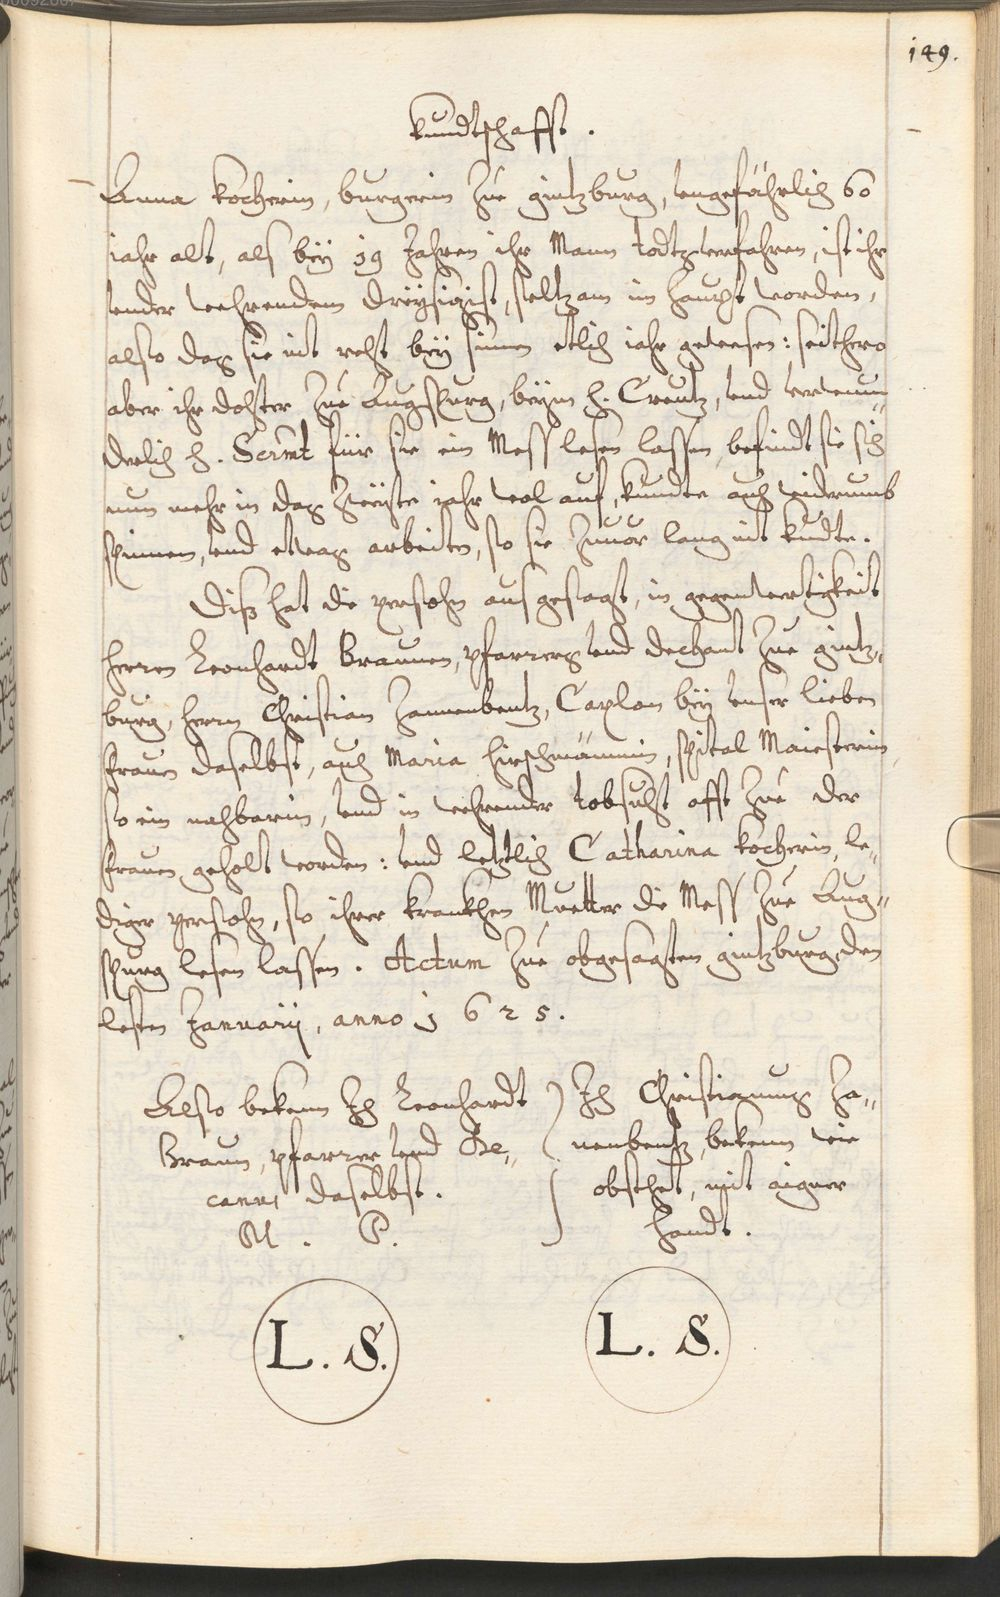 149.
Kundtschafft.
Anna Kocherin, burgerin zue gintzburg, ungefährlich 60
jahr alt, als beÿ 19 Jahren ihr Mann todtz verfahren, ist ihr
under wehrendem dreÿsigist, seltzam im haupt worden,
also daz sie nit recht beÿ sinnen etlich jahr gewesen: seithero
aber ihr dochter zue Augspurg, beÿm h. Creutz, und verwun„
derlich h. Scrmt für sie ein Mess lesen lassen, befindt sie sich
nun mehr in daz zweÿte jahr wol auf, kundte auch widerumb
spinnen, und etwaz arbeiten, so sie zuuor lang nit kundte.
Diß hat die persohn ausgesagt, in gegenwertigkeit
herren Leonhardt Braunen, pfarrers und dechant zue gintz„
burg, herrn Christian Zannenbentz, Caplan beÿ unser lieben
frauen daselbst, auch Maria Hirschmännin, spital Maiesterin,
so ein nachbarin, und in wehrender tobsucht offt zue der
frauen geholt worden: und letztlich Catharina Kocherin, le„
diger persohn, so ihrer krankhen Muetter die Mess zue Aug„
spurg lesen lassen. Actum zue obgesagten gintzburg, den
lesten Januarij, anno 1625.
Also bekenn Ich Leonhardt
Braun, pfarrer und De„
canus daselbst.
M. P.
Ich Christianus Za„
nenbentz, bekenn wie
obsthet, mit aigner
handt.
L. S.
L. S.